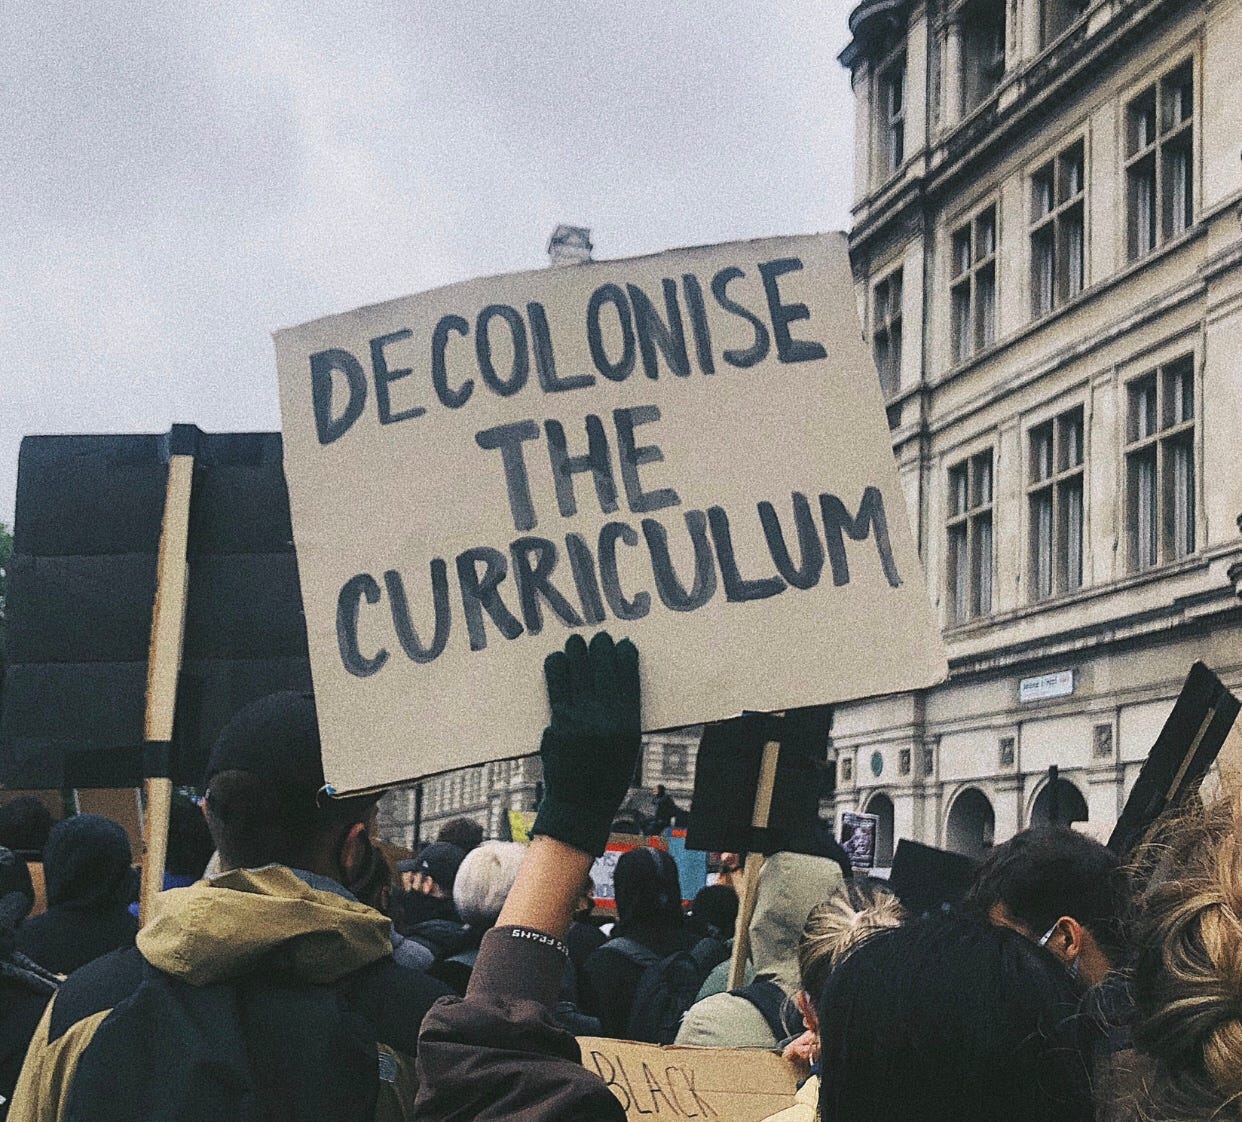 DECOLONISE
THE
CURRICULUM
BLACK